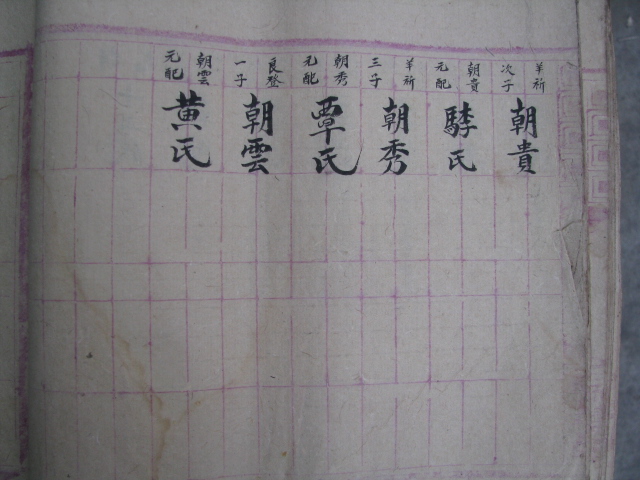 羊祈次子
朝貴
朝貴元配
騲氏
羊祈三子
朝秀
朝秀元配
覃氏
良登一子
朝雲
朝雲元配
黄氏